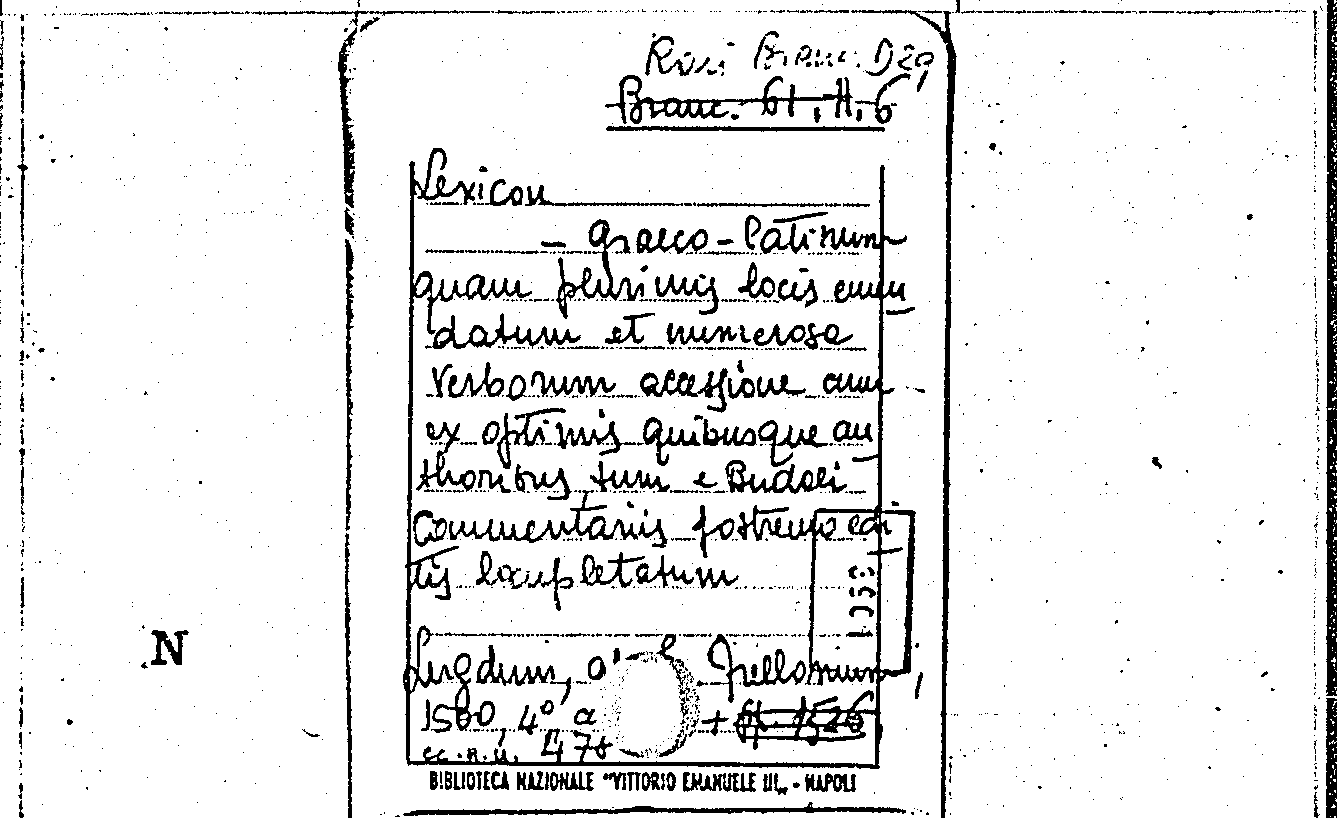 Rari Branc. D29
Branc. 61. H. 6
Lexicon
- graeco-latinum
quam plurimis locis emen
datum et numerosa
verborum accessione cum
ex optimis quibusque au
thoribus, tum e Budaei
Commentariis postremo edi
tis locupletatum
1953
N
Lugduni, Frellonium,
1550, 4° +
cc. n.n. 478
BIBLIOTECA NAZIONALE "VITTORIO EMANUELE III" - NAPOLI